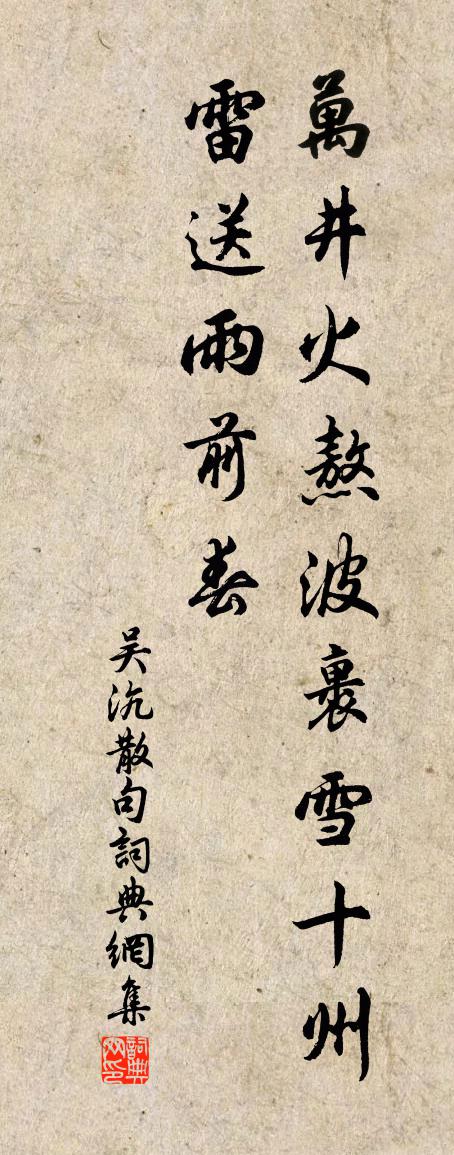 萬井火熬波裹雪十州
雷送雨前春
吴沆散句詞典網集
詞典网印